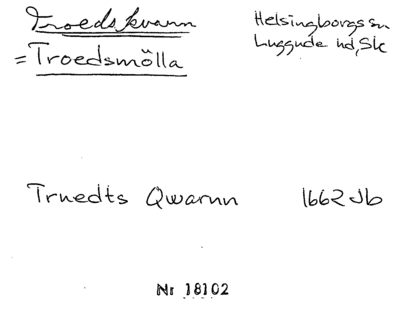 Troedskvarn
Helsingborgs sn
= Troedsmölla
Luggude hd, Sk
Truedts Qwarnn 1662 Jb
Nr 18102